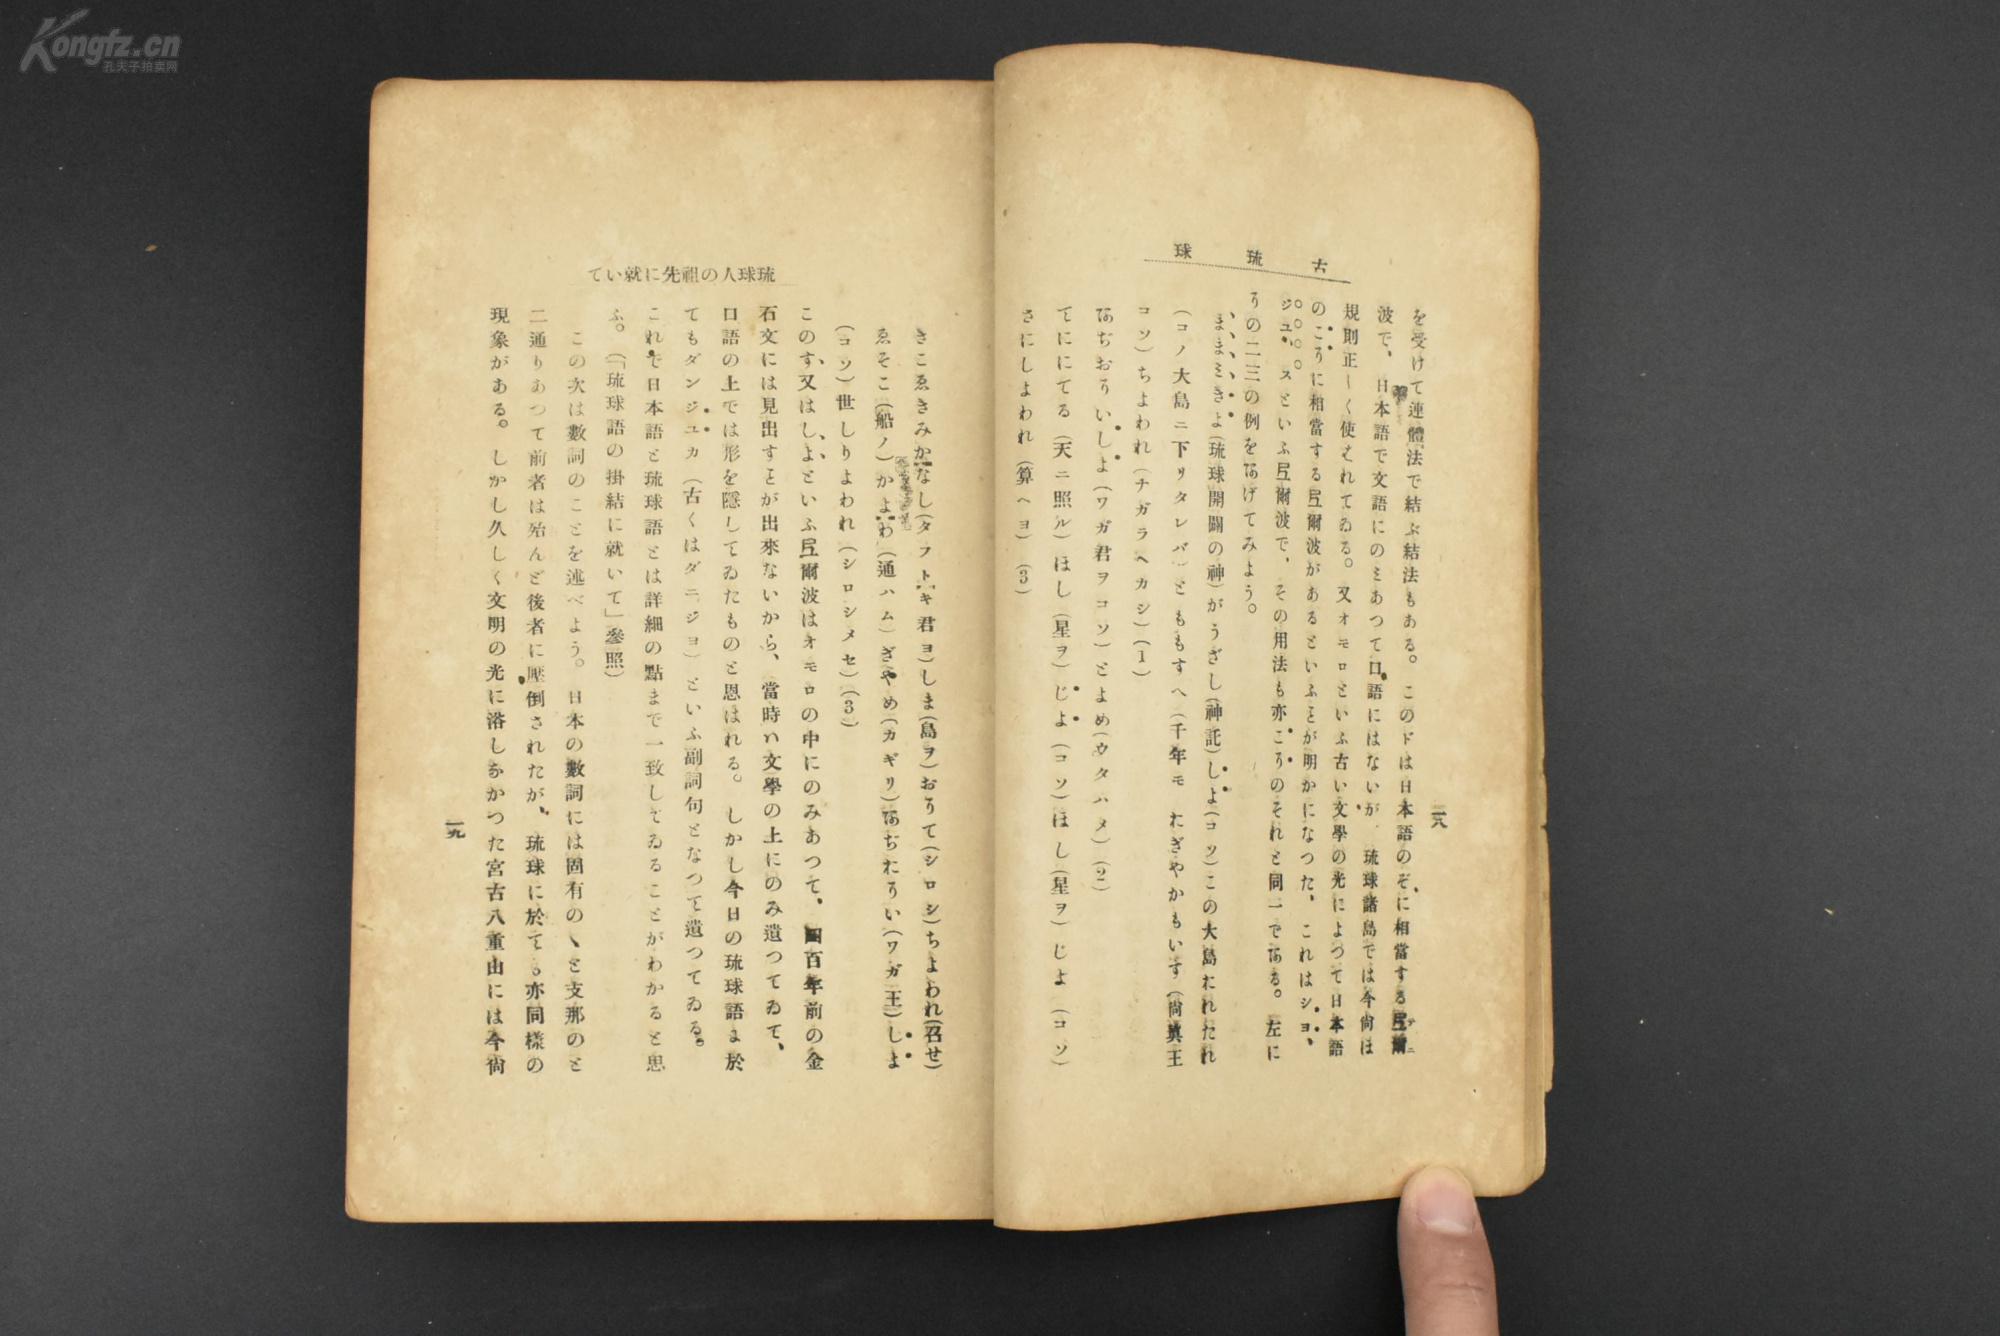 Kongfz.cn
孔夫子拍卖网
古琉球
一八
を受けて連體法で結ぶ結法もある。このドは日本語のぞに相當する弖爾
波で、日本語で文語にのみあつて口語にはないが、琉球諸島では今尚ほ
規則正しく使はれてゐる。又オモロといふ古い文學の光によつて日本語
のこうに相當する弖爾波があるといふことが明かになつた。これはシヨ、
ジユ、スといふ弖爾波で、その用法も亦こうのそれと同一である。左に
うの二三の例をあげてみよう。
まみきよ(琉球開闢の神)がうざし(神託)しよ(コソ)この大島おれたれ
(コノ大島ニ下リタレバ)ともゝすへ(千年モ おぎやかもいす(尚眞王
コソ)ちよわれ(ナガラヘカシ)(1)
あぢおういしよ(ワガ君ヲコソ)とよめ(ウタハメ)(2)
てににてる(天ニ照ル)ほし(星ヲ)じよ(コソ)ほし(星ヲ)じよ(コソ)
さにしよわれ(算ヘヨ)(3)
琉球人の祖先に就いて
きこゑきみかなし(タフトキ君ヨ)しま(島ヲ)おうて(シロシ)ちよわれ(召せ)
ゑそこ(船ノ)かよわ(通ハム)ぎやめ(カギリ)あぢおうい(ワガ王)しよ
(コソ)世しりよわれ(シロシメセ)(3)
このす、又はしよといふ弖爾波はオモロの中にのみあつて、四百年前の金
石文には見出すことが出來ないから、當時は文學の上にのみ遺つてゐて、
口語の上では形を隱してゐたものと思はれる。しかし今日の琉球語に於
てもダンジユカ(古くはダニジヨ)といふ副詞句となつて遺つてゐる。
これで日本語と琉球語とは詳細の點まで一致してゐることがわかると思
ふ。(「琉球語の掛結に就いて」參照)
この次は數詞のことを述べよう。日本の數詞には固有のゝと支那のと
二通りあつて前者は殆んど後者に壓倒されたが、琉球に於ても亦同樣の
現象がある。しかし久しく文明の光に浴しなかつた宮古八重山には今尚
一九